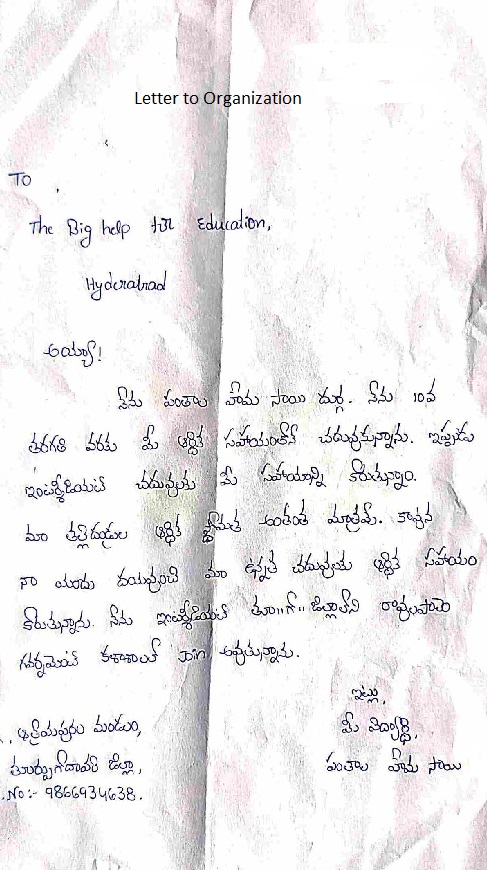 Letter to Organization
To
The Big help for Education,
Hyderabad
అయ్యా!
నేను పంతాల హేమ సాయి దుర్గ. నేను 10వ
తరగతి వరకు మీ ఆర్థిక సహాయంతోనే చదువుకున్నాను. ఇప్పుడు
ఇంటర్మీడియట్ చదువులకు మీ సహాయాన్ని కోరుతున్నాం.
మా తల్లిదండ్రుల ఆర్థిక స్తోమత అంతంత మాత్రమే. కావున
నా యందు దయవుంచి మా ఉన్నత చదువులకు ఆర్థిక సహాయం
కోరుతున్నాను. నేను ఇంటర్మీడియట్ తూ||గో|| జిల్లాలోని రావులపాలెం
గవర్నమెంట్ కళాశాలలో Join అవుతున్నాను.
ఇట్లు,
మీ విద్యార్థి,
పంతాల హేమ సాయి
ఆత్రేయపురం మండలం,
తూర్పుగోదావరి జిల్లా,
.No:- 9866934638.